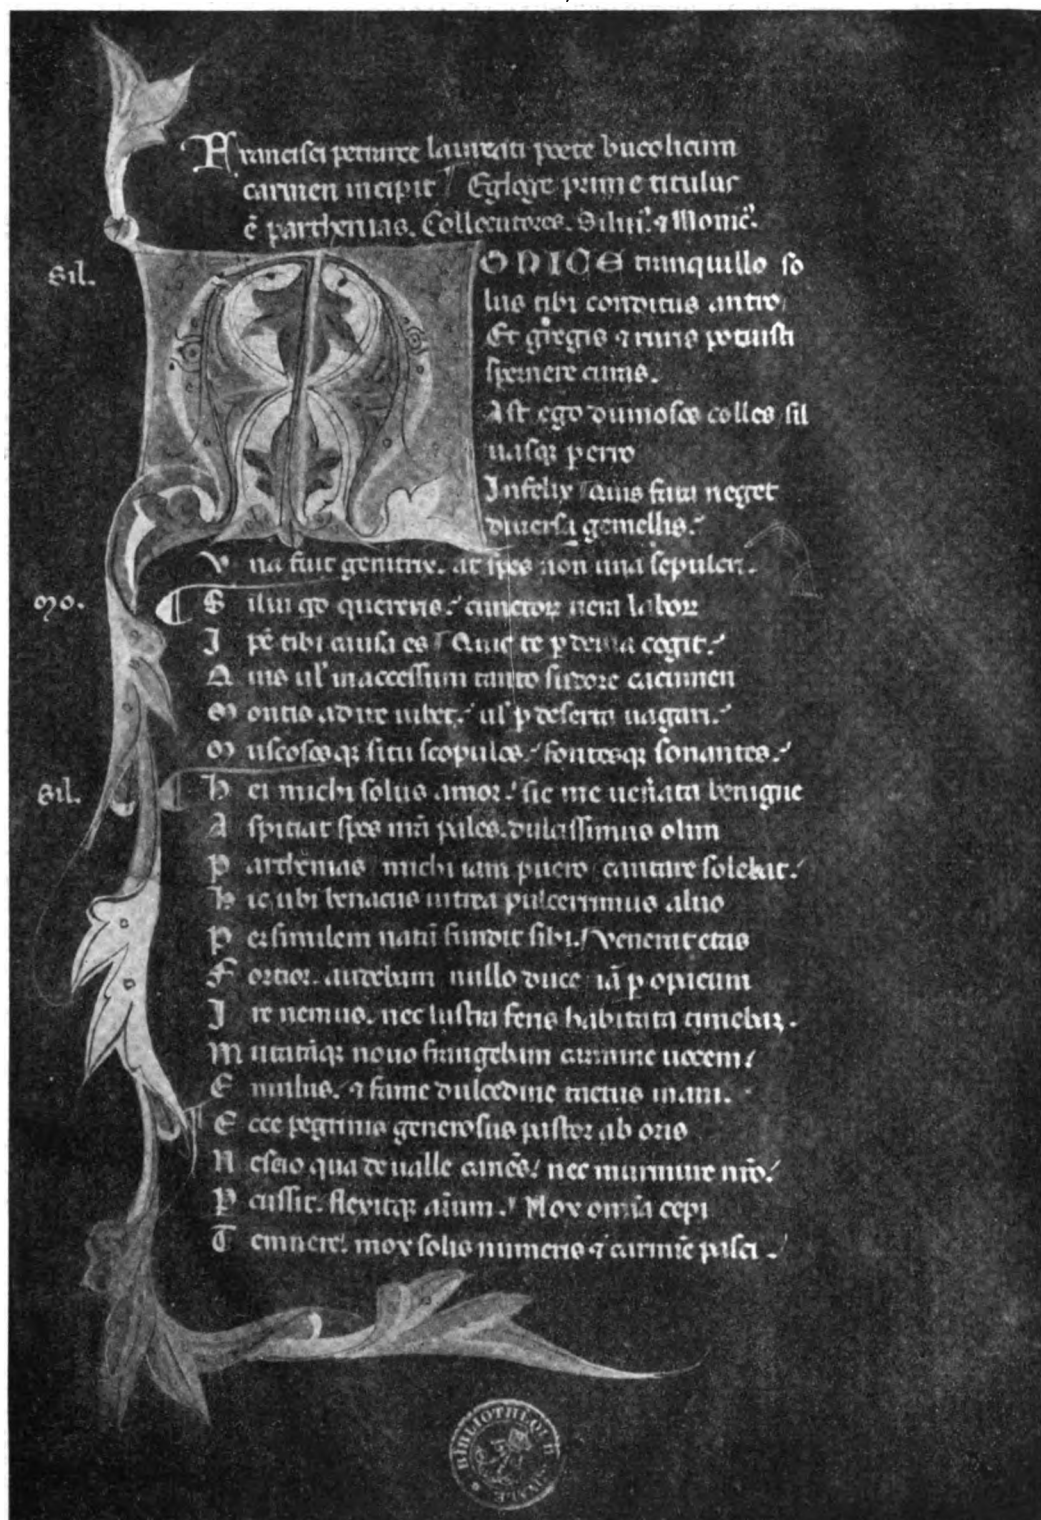 Francisci petrarce laureati poete bucolicum
carmen incipit Egloge prime titulus
ē parthenias. Collocutores. Silui⁹. ⁊ Monic⁹.
Sil.
MONICE tranquillo so
lus tibi conditus antro
Et gregis ⁊ ruris potuisti
spernere curas.
Ast ego dumosos colles sil
uasqꝫ perro
Infelix quis fata neget
diuersa gemellis.
Vna fuit genitrix. at spes non una sepulcri.
Mo.
Silui qd quereris. cunctorꝫ uera laborꝫ
Ipē tibi causa es Quis te ꝑ deuia cogit.
Quis ul' inaccessum tanto sudore cacumen
Montis adire iubet. ul' ꝑ deserta uagari.
Muscososqꝫ situ scopulos fontesqꝫ sonantes.
Sil.
Hei michi solus amor. sic me uen̄ata benigne
Aspitiat spes mr̄a pales. dulcissimus olim
Parthenias michi iam puero cantare solebat.
Hic ubi benacus uitrea pulcerrimus aluo
Persimilem natū fundit sibi. Venerat etas
Fortior. audebam nullo duce iā ꝑ opacum
Ire nemus. nec lustra feris habitata timebāꝫ.
Mutatāqꝫ nouo frangebam carmine uocem
Emulus. ⁊ fame dulcedine tactus inani.
Ecce pegrinis generosus pastor ab oris
Nescio qua de ualle canēs nec murmure nr̄o.
Pcussit. flexitqꝫ aīum. Mox omnia cepi
Temnere mox solis numeris ⁊ carmīe pasci.
BIBLIOTHEQUE ROYALE